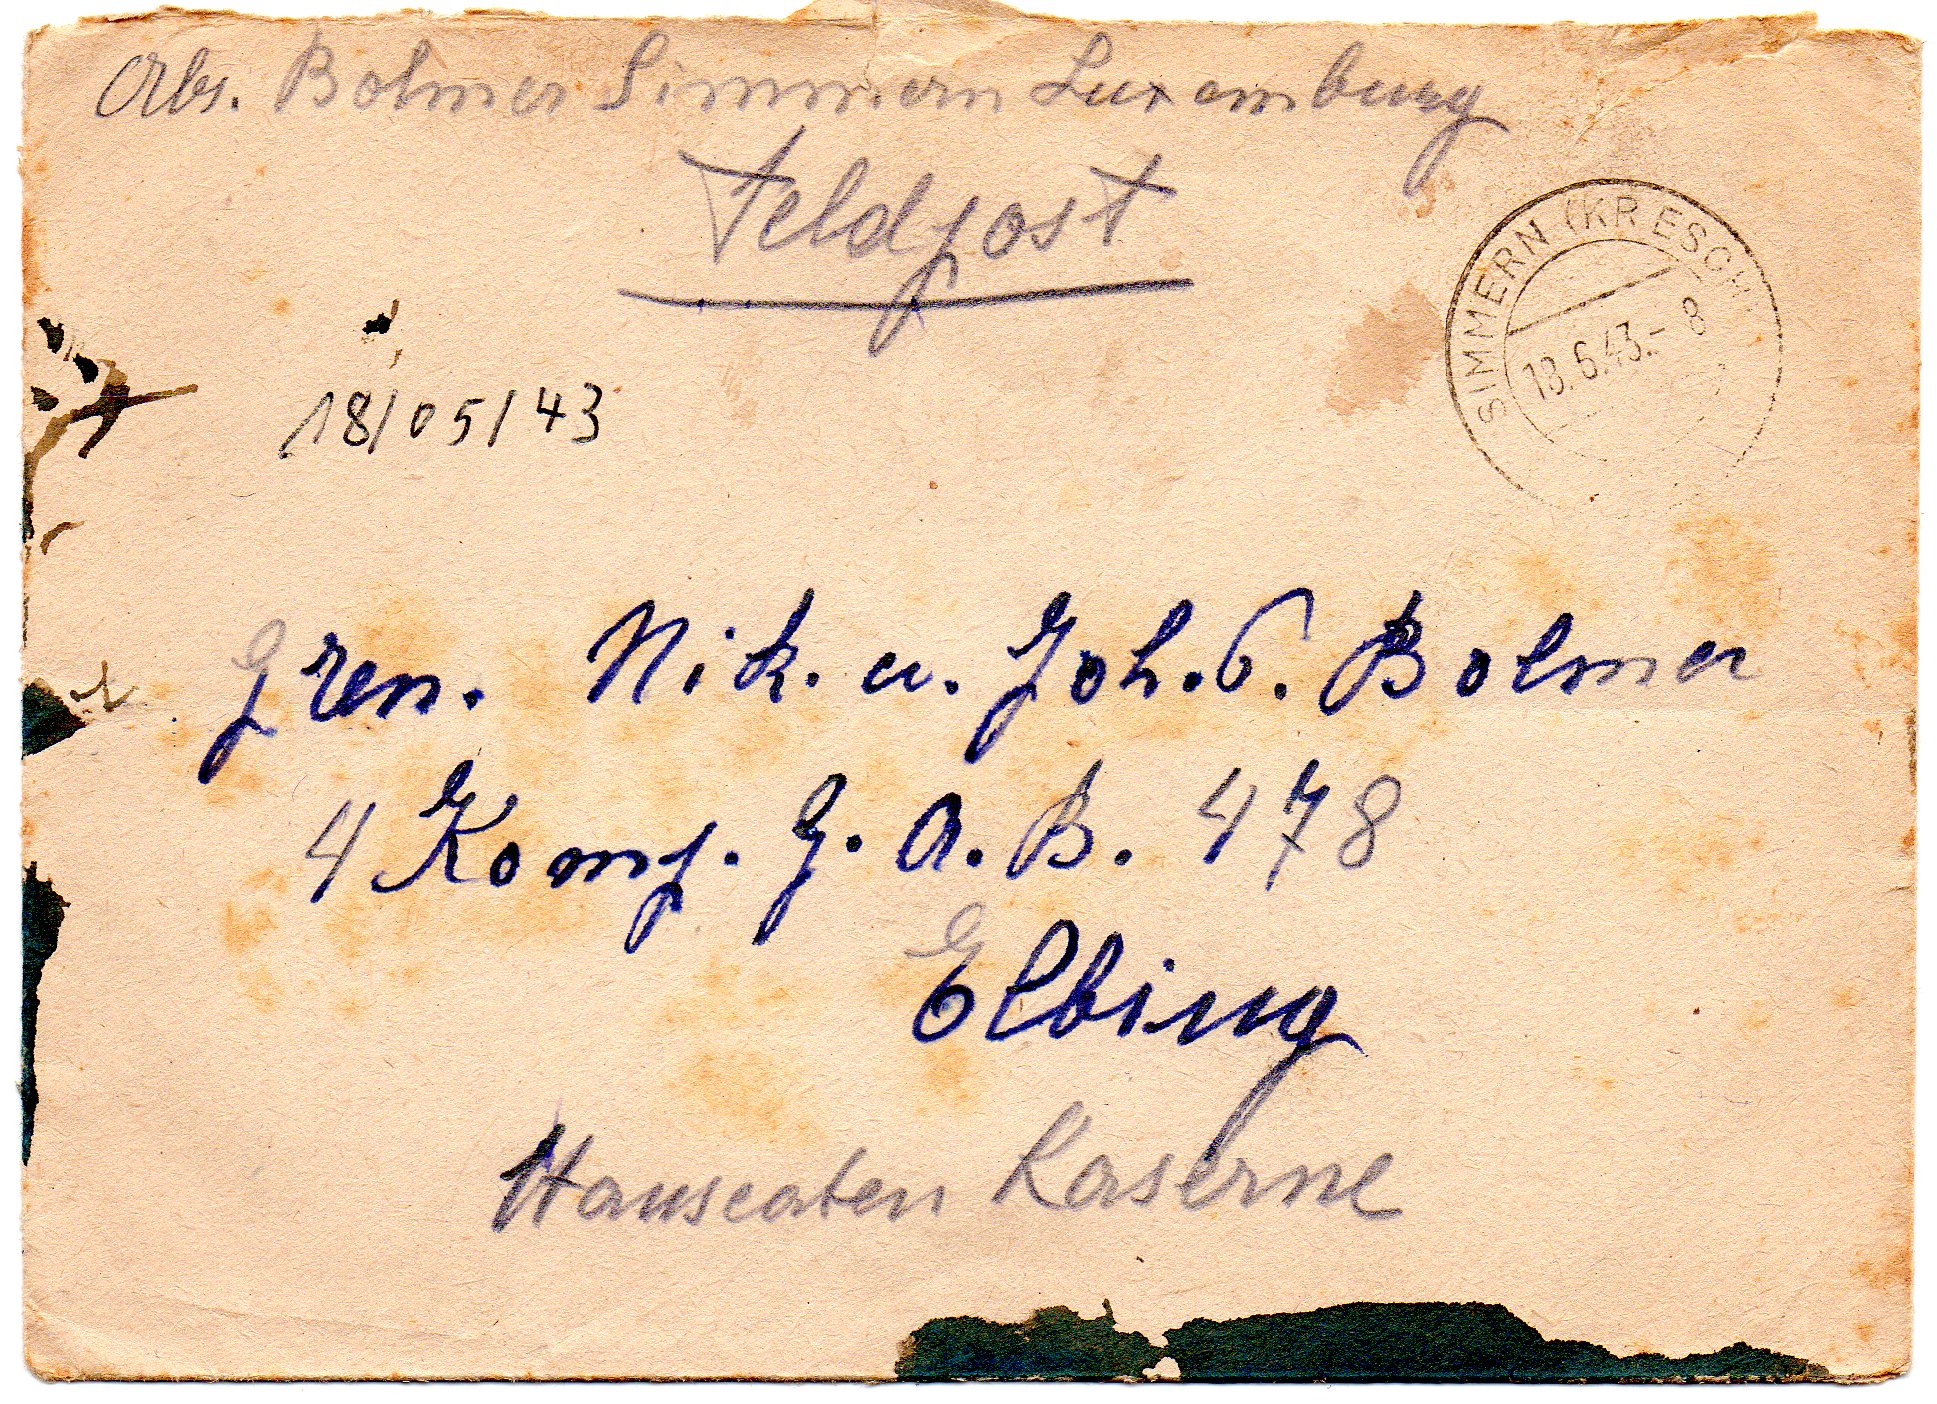 Abs. Bohmer Simmern Luxemburg
Feldpost
SIMMERN (KR ESCH)
18.6.43.- 8
18/05/43
Gren. Nik. u. Joh. P. Bohmer
4 Komp. G. A. B. 478
Elbing
Hanseaten Kaserne